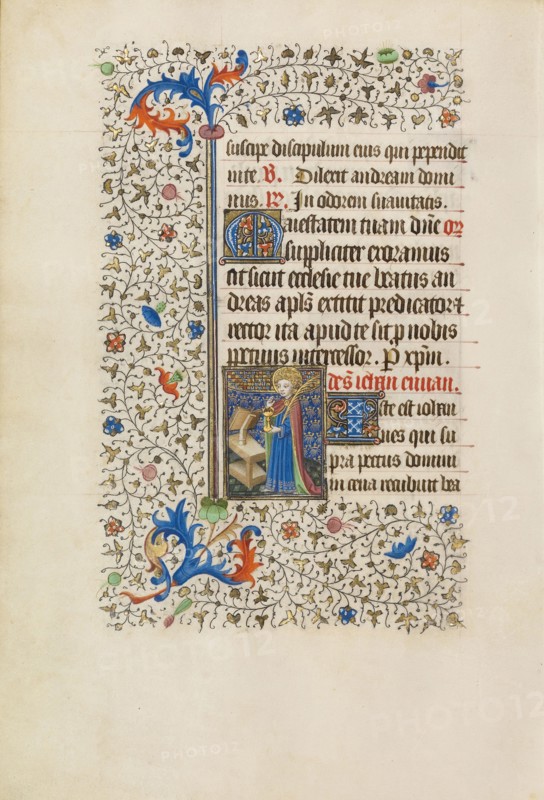 suscipe discipulum eius qui pependit
in te V. Dilexit andream domi
nus. R. In odorem suavitatis.
Maiestatem tuam dñe Or
suppliciter exoramus
ut sicut ecclesie tue beatus an
dreas apłs extitit predicator et
rector ita apud te sit p nobis
petuus intercessor. P xpm.
De s iohan euuan.
Iste est iohan
nes qui su
pra pectus domini
in cena recubuit bea
PHOTO12